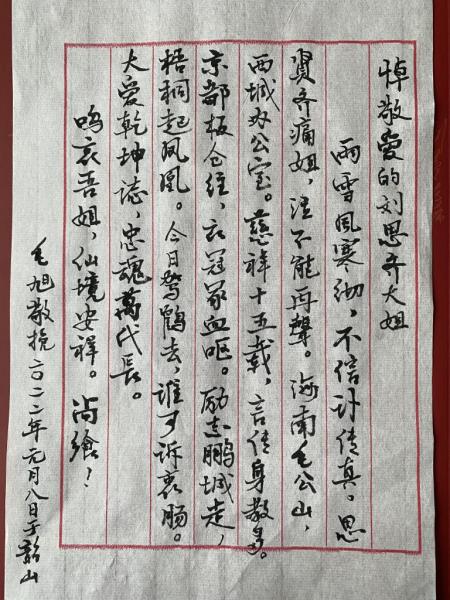 悼敬爱的刘思齐大姐
雨雪风寒幼,不信讣传真。思
贤齐痛姐,泣不能再声。海南毛公山,
西城办公室。慈祥十五载,言传身教多。
京都板仓经,衣冠冢血呕。励志鹏城走,
梧桐起凤凰。今日驾鹤去,谁可诉衷肠。
大爱乾坤誌,忠魂萬代長。
呜哀吾姐,仙境安祥。尚飨!
毛旭敬挽二〇二二年元月八日于韶山